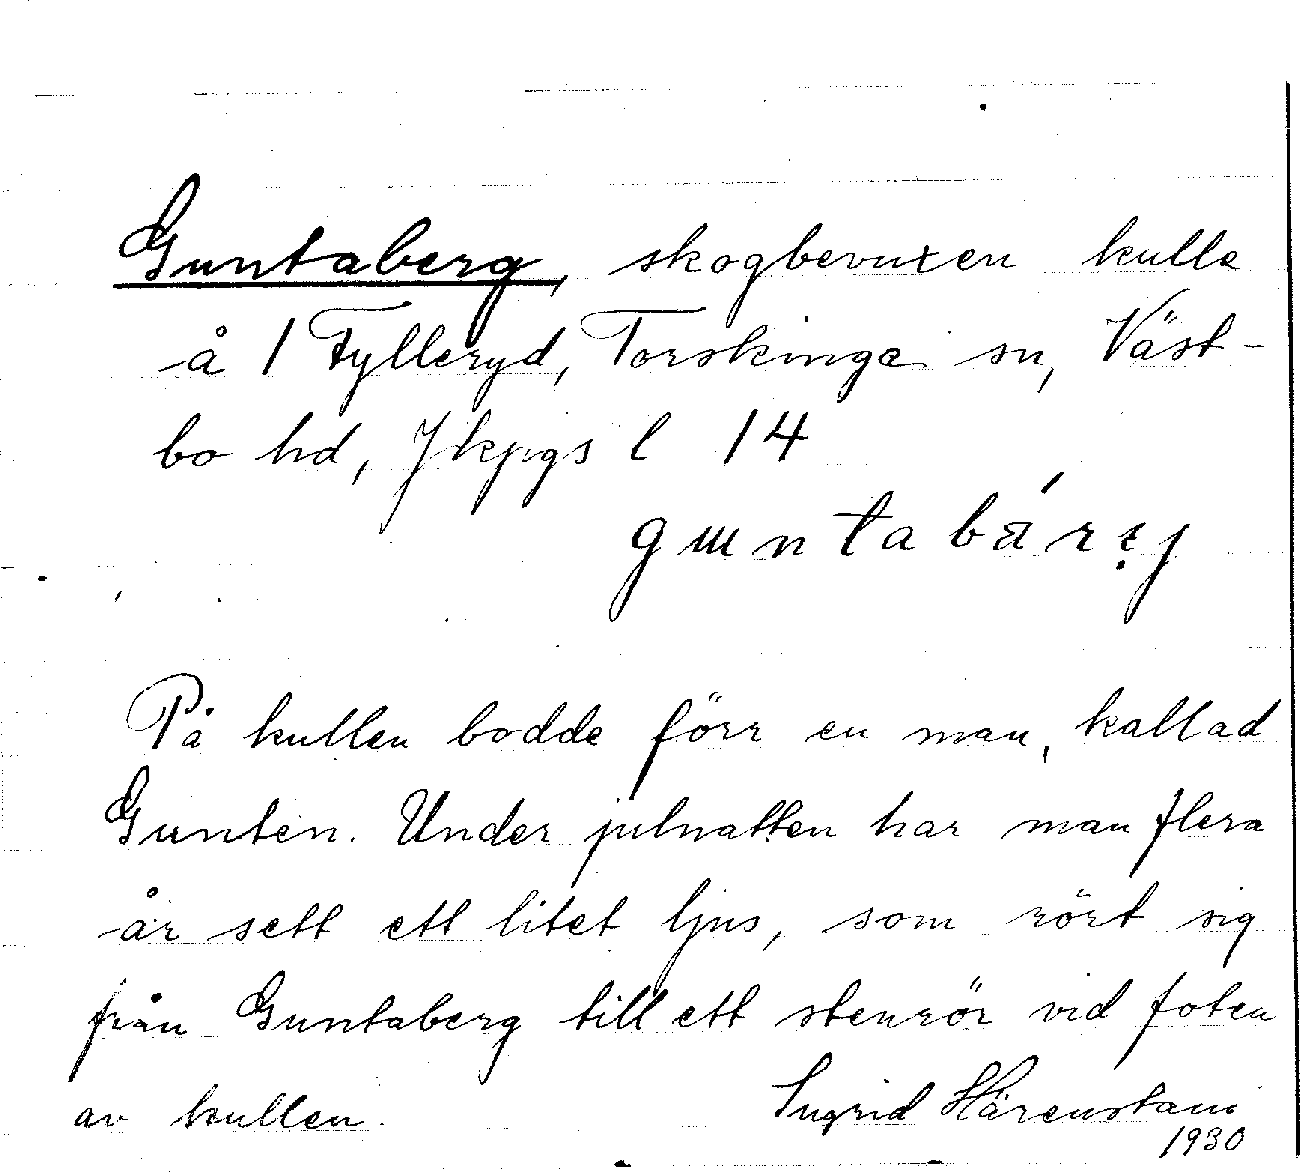 Guntaberg, skogbevuxen kulle
å 1 Fylleryd, Torskinge sn, Väst-
bo hd, Jkpgs l 14
På kullen bodde förr en man, kallad
Gunten. Under julnatten har man flera
år sett ett litet ljus, som rört sig
från Guntaberg till ett stenrör vid foten
av kullen. Ingrid Härenstam
1930